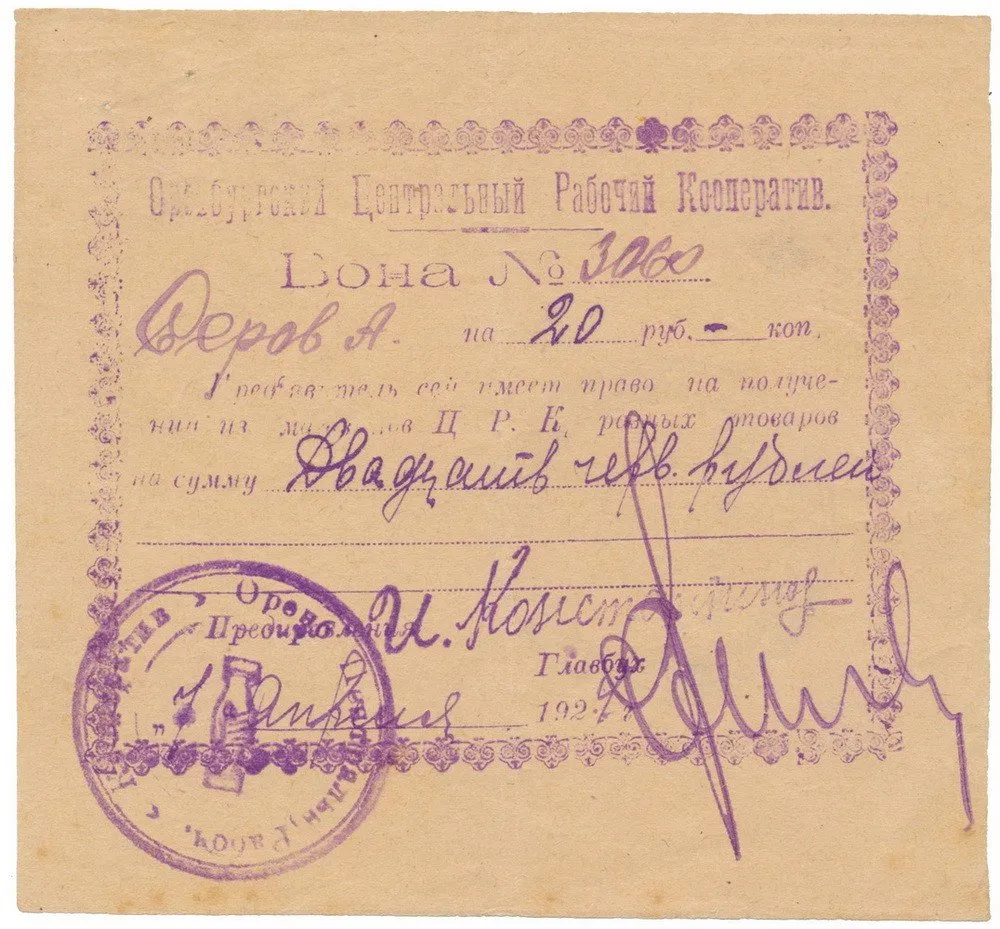 Оренбургский Центральный Рабочий Кооператив.
Бона № 3060
Серов А. на 20 руб. - коп.
Предъявитель сей имеет право на получе-
ний из магазинов Ц. Р. К. разных товаров
на сумму Двадцать черв. рублей
Предправления И. Константинов
Главбух
"7" Апреля 192
Оренб. Центральн. Рабоч. Кооператив